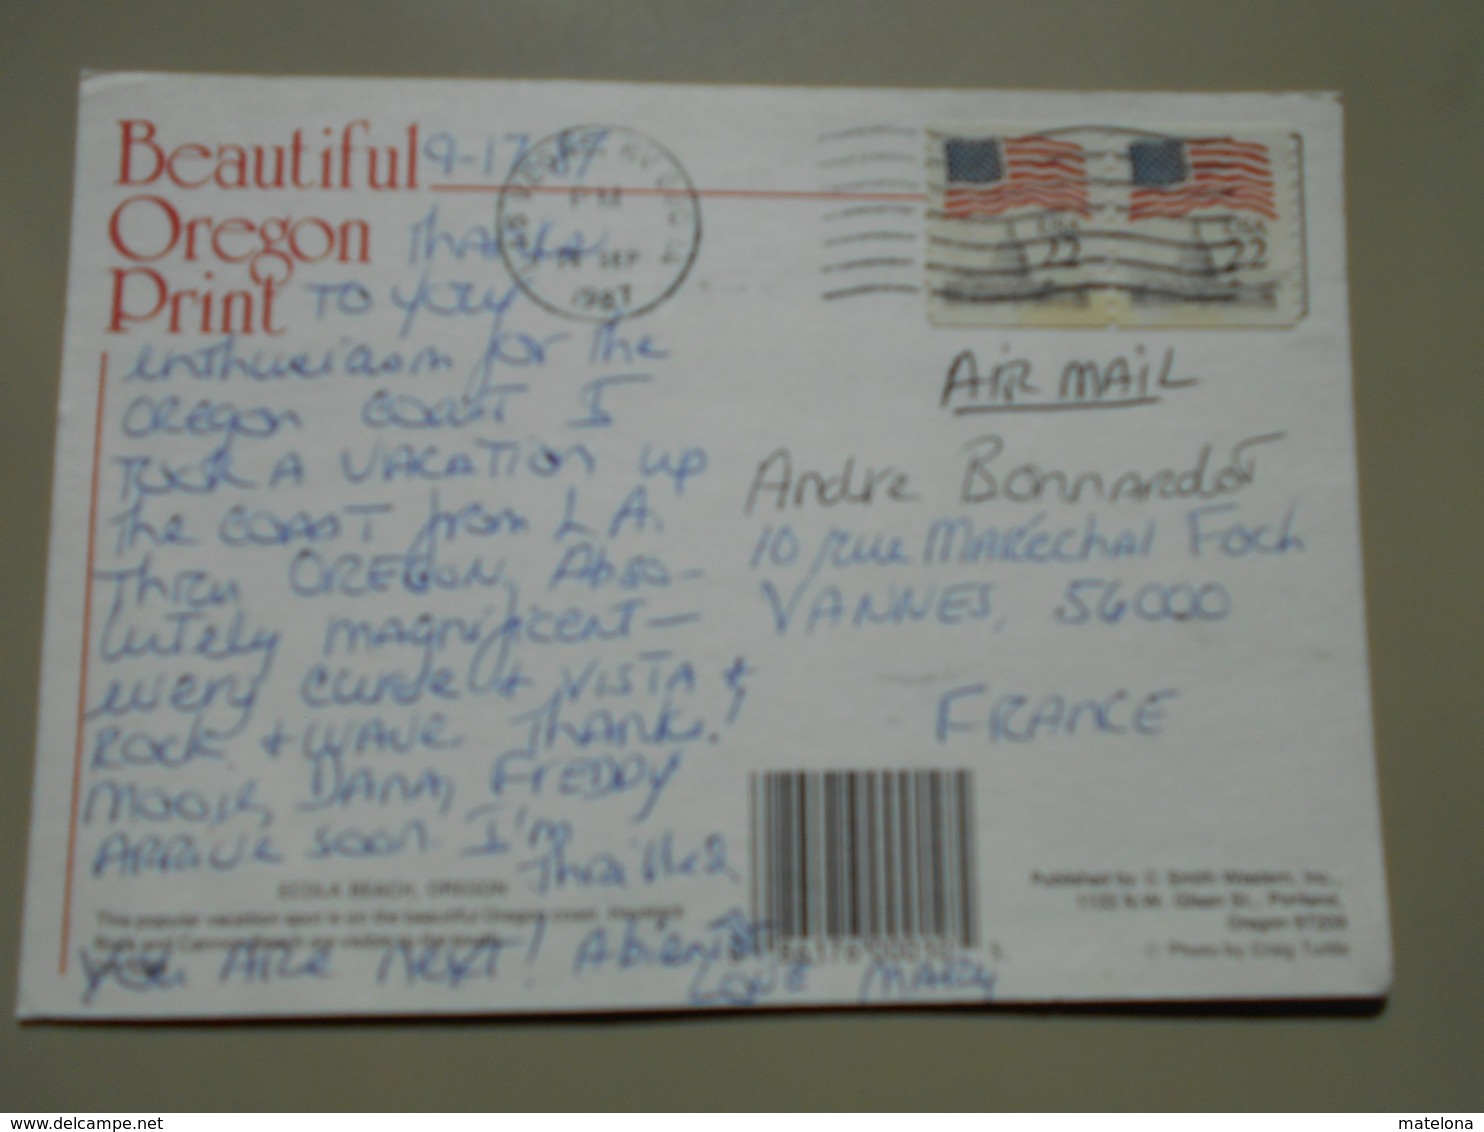 Beautiful
Oregon
Print
9-17-87
PM
SEP
1987
USA
22
USA
22
AIR MAIL
Thanks
TO your
enthusiasm for the
OREGON COAST I
TOOK A VACATION up
the COAST from L.A.
Thru OREGON, Abso-
lutely magnificent—
every curve + VISTA +
ROCK + WAVE. Thanks!
DANA, FREDDY
ARRIVE soon. I'm
Thrilled
YOU ARE NEXT! Abientôt
LOVE MARY
Andre Bonnardot
10 rue Maréchal Foch
VANNES, 56000
FRANCE
ECOLA BEACH, OREGON
This popular vacation spot is on the beautiful Oregon coast.
Published by © Smith Western, Inc.,
1122 N.W. Glisan St., Portland,
Oregon 97209
Photo by Craig Tuttle
matelona